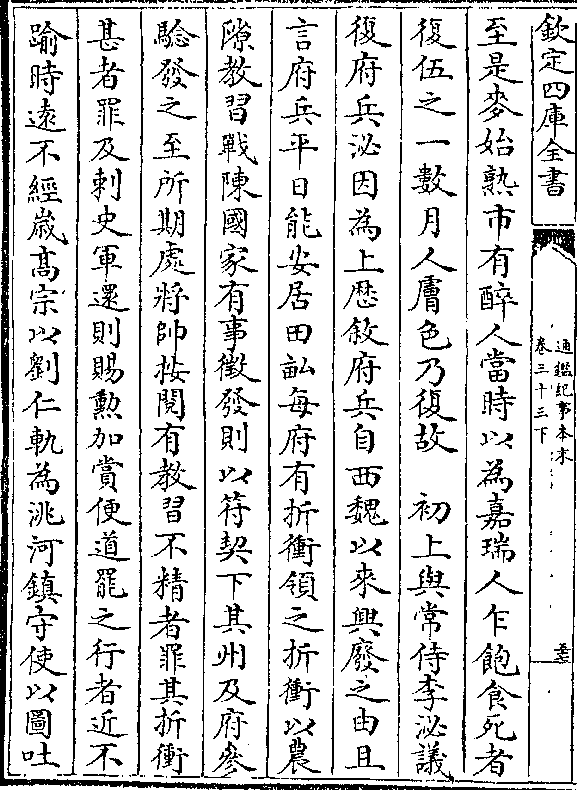 欽定四庫全書
通鑑紀事本末
卷三十三下
至是麥始熟市有醉人當時以為嘉瑞人乍飽食死者
復伍之一數月人膚色乃復故　初上與常侍李泌議
復府兵泌因為上歴敘府兵自西魏以來興廢之由且
言府兵平日能安居田畝每府有折衝領之折衝以農
隙教習戰陳國家有事徵發則以符契下其州及府參
驗發之至所期處將帥按閱有教習不精者罪其折衝
甚者罪及刺史軍還則賜勲加賞便道罷之行者近不
踰時遠不經歲髙宗以劉仁軌為洮河鎮守使以圖吐